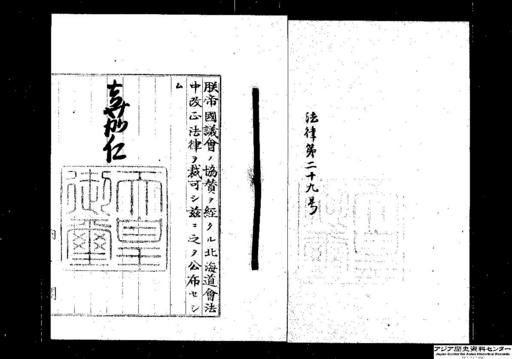 法律第二十九号
朕帝國議會ノ協賛ヲ經タル北海道會法
中改正法律ヲ裁可シ茲ニ之ヲ公布セシ
ム
嘉仁
天皇
御璽
内
閣
アジア歴史資料センター
Japan Center for Asian Historical Records